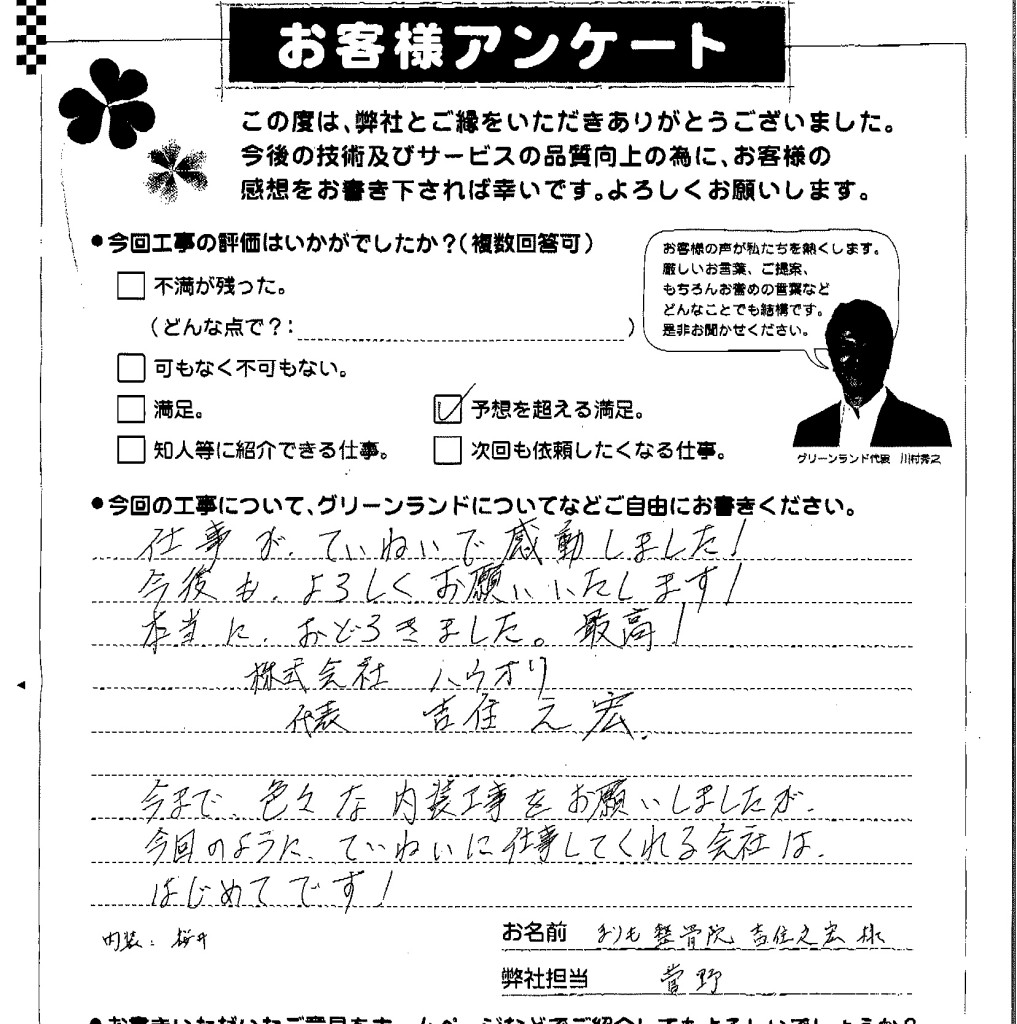 お客様アンケート
この度は、弊社とご縁をいただきありがとうございました。
今後の技術及びサービスの品質向上の為に、お客様の
感想をお書き下されば幸いです。よろしくお願いします。
●今回工事の評価はいかがでしたか？（複数回答可）
お客様の声が私たちを熱くします。
厳しいお言葉、ご提案、
もちろんお奮めの言葉など
どんなことでも結構です。
是非お聞かせください。
不満が残った。
（どんな点で？： ）
可もなく不可もない。
満足。
予想を超える満足。
知人等に紹介できる仕事。
次回も依頼したくなる仕事。
グリーンランド代表 川村秀之
●今回の工事について、グリーンランドについてなどご自由にお書きください。
仕事が、ていねいで感動しました！
今後も、よろしくお願いいたします！
本当に、おどろきました。最高！
株式会社 ハウオリ
代表 吉住之宏.
今まで、色々な内装工事をお願いしましたが、
今回のように、ていねいに仕事してくれる会社は、
はじめてです！
内装：桜井
お名前 まりも整骨院 吉住之宏 様
弊社担当 菅野
●お書きいただいたご意見をホームページなどでご紹介してもよろしいでしょうか？